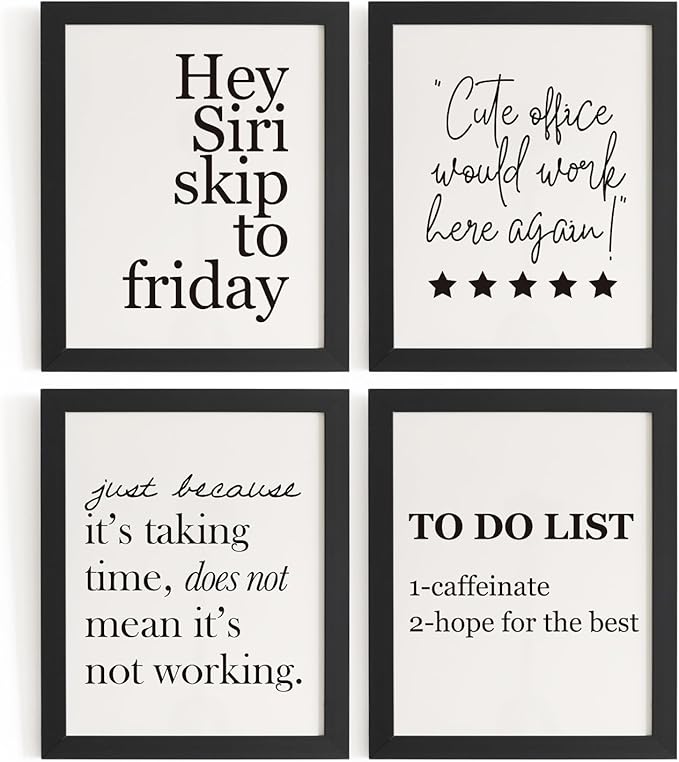 Hey
Siri
skip
to
friday
"Cute office
would work
here again!"
just because
it's taking
time, does not
mean it's
not working.
TO DO LIST
1-caffeinate
2-hope for the best